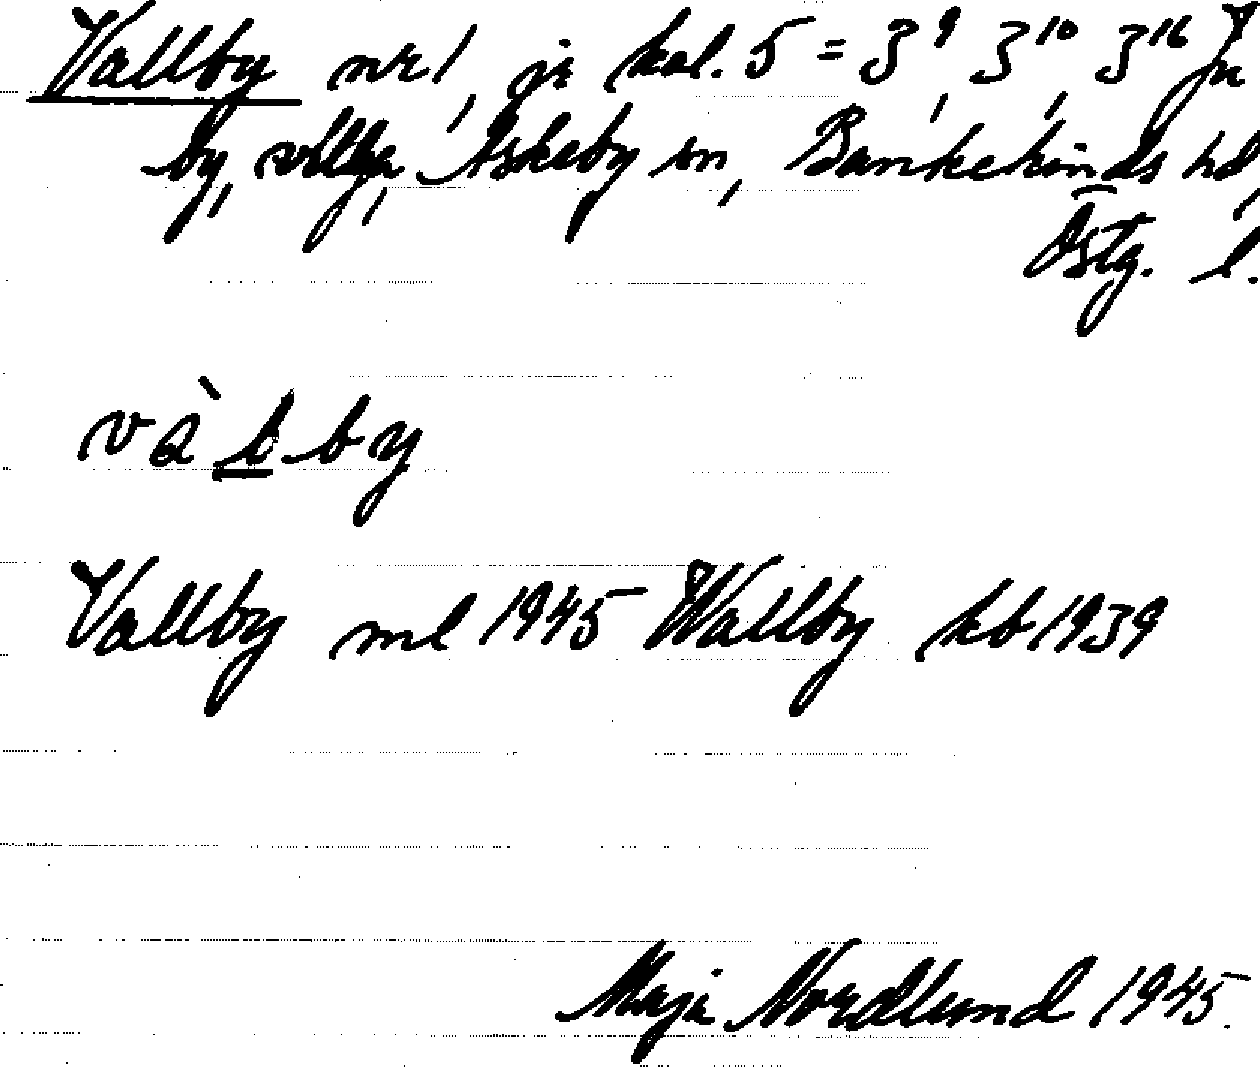 Vallby nr 1, je kol. 5 = 3⁹, 3¹⁰, 3¹⁶
by, Askeby sn, Bankekinds hd,
Östg. l.
và l by
Vallby ml 1945 Wallby kb 1939
Maja Nordlund 1945.